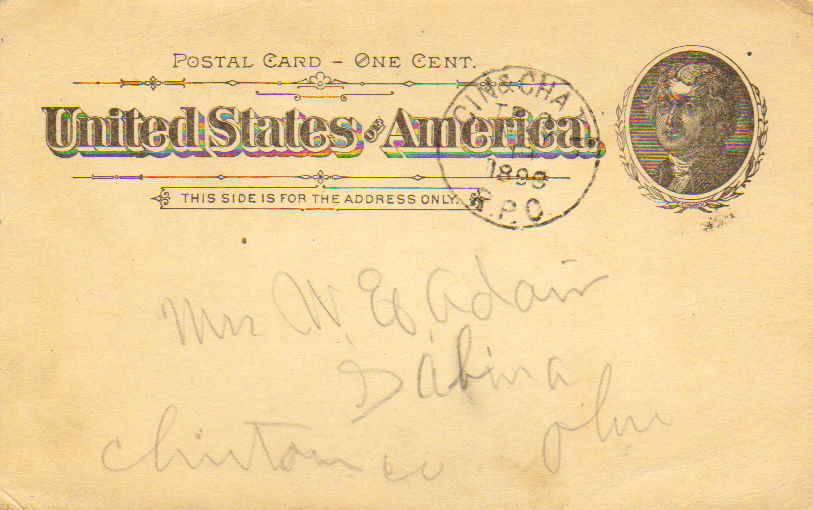 POSTAL CARD – ONE CENT.
United States of America.
THIS SIDE IS FOR THE ADDRESS ONLY.
CIN & CHAT
TR
1899
R.P.O.
Mrs W E Adair
Sabina
Clinton co Ohio